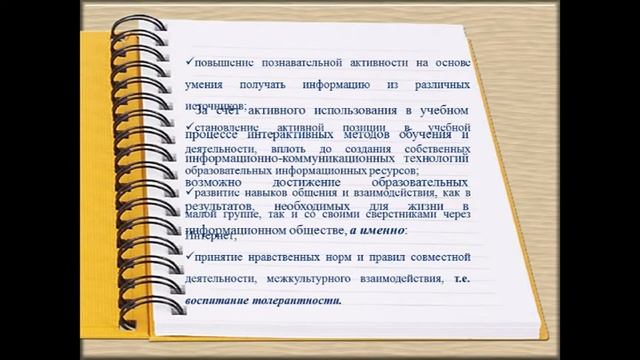 ✓повышение познавательной активности на основе
умения получать информацию из различных
источников;
За счет активного использования в учебном
✓становление активной позиции в учебной
процессе интерактивных методов обучения и
деятельности, вплоть до создания собственных
информационно-коммуникационных технологий
образовательных информационных ресурсов;
возможно достижение образовательных
✓развитие навыков общения и взаимодействия, как в
результатов, необходимых для жизни в
малой группе, так и со своими сверстниками через
информационном обществе, а именно:
Интернет;
✓принятие нравственных норм и правил совместной
деятельности, межкультурного взаимодействия, т.е.
воспитание толерантности.